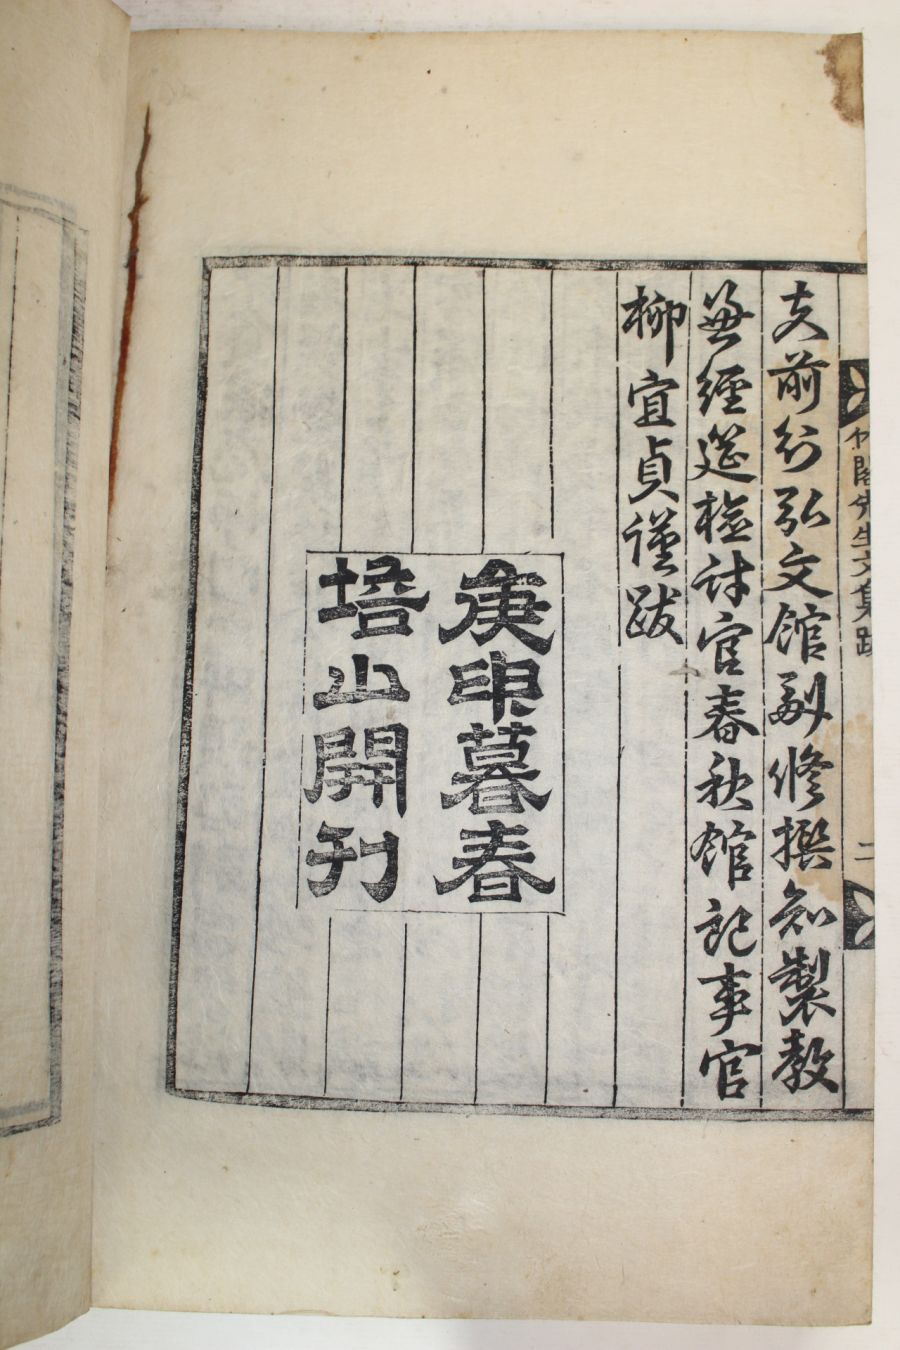 支前行弘文館副修撰知製教
兼經筵檢討官春秋館記事官
柳宜貞謹跋
庚印暮春
培山開刊
閣先生文集跋
二